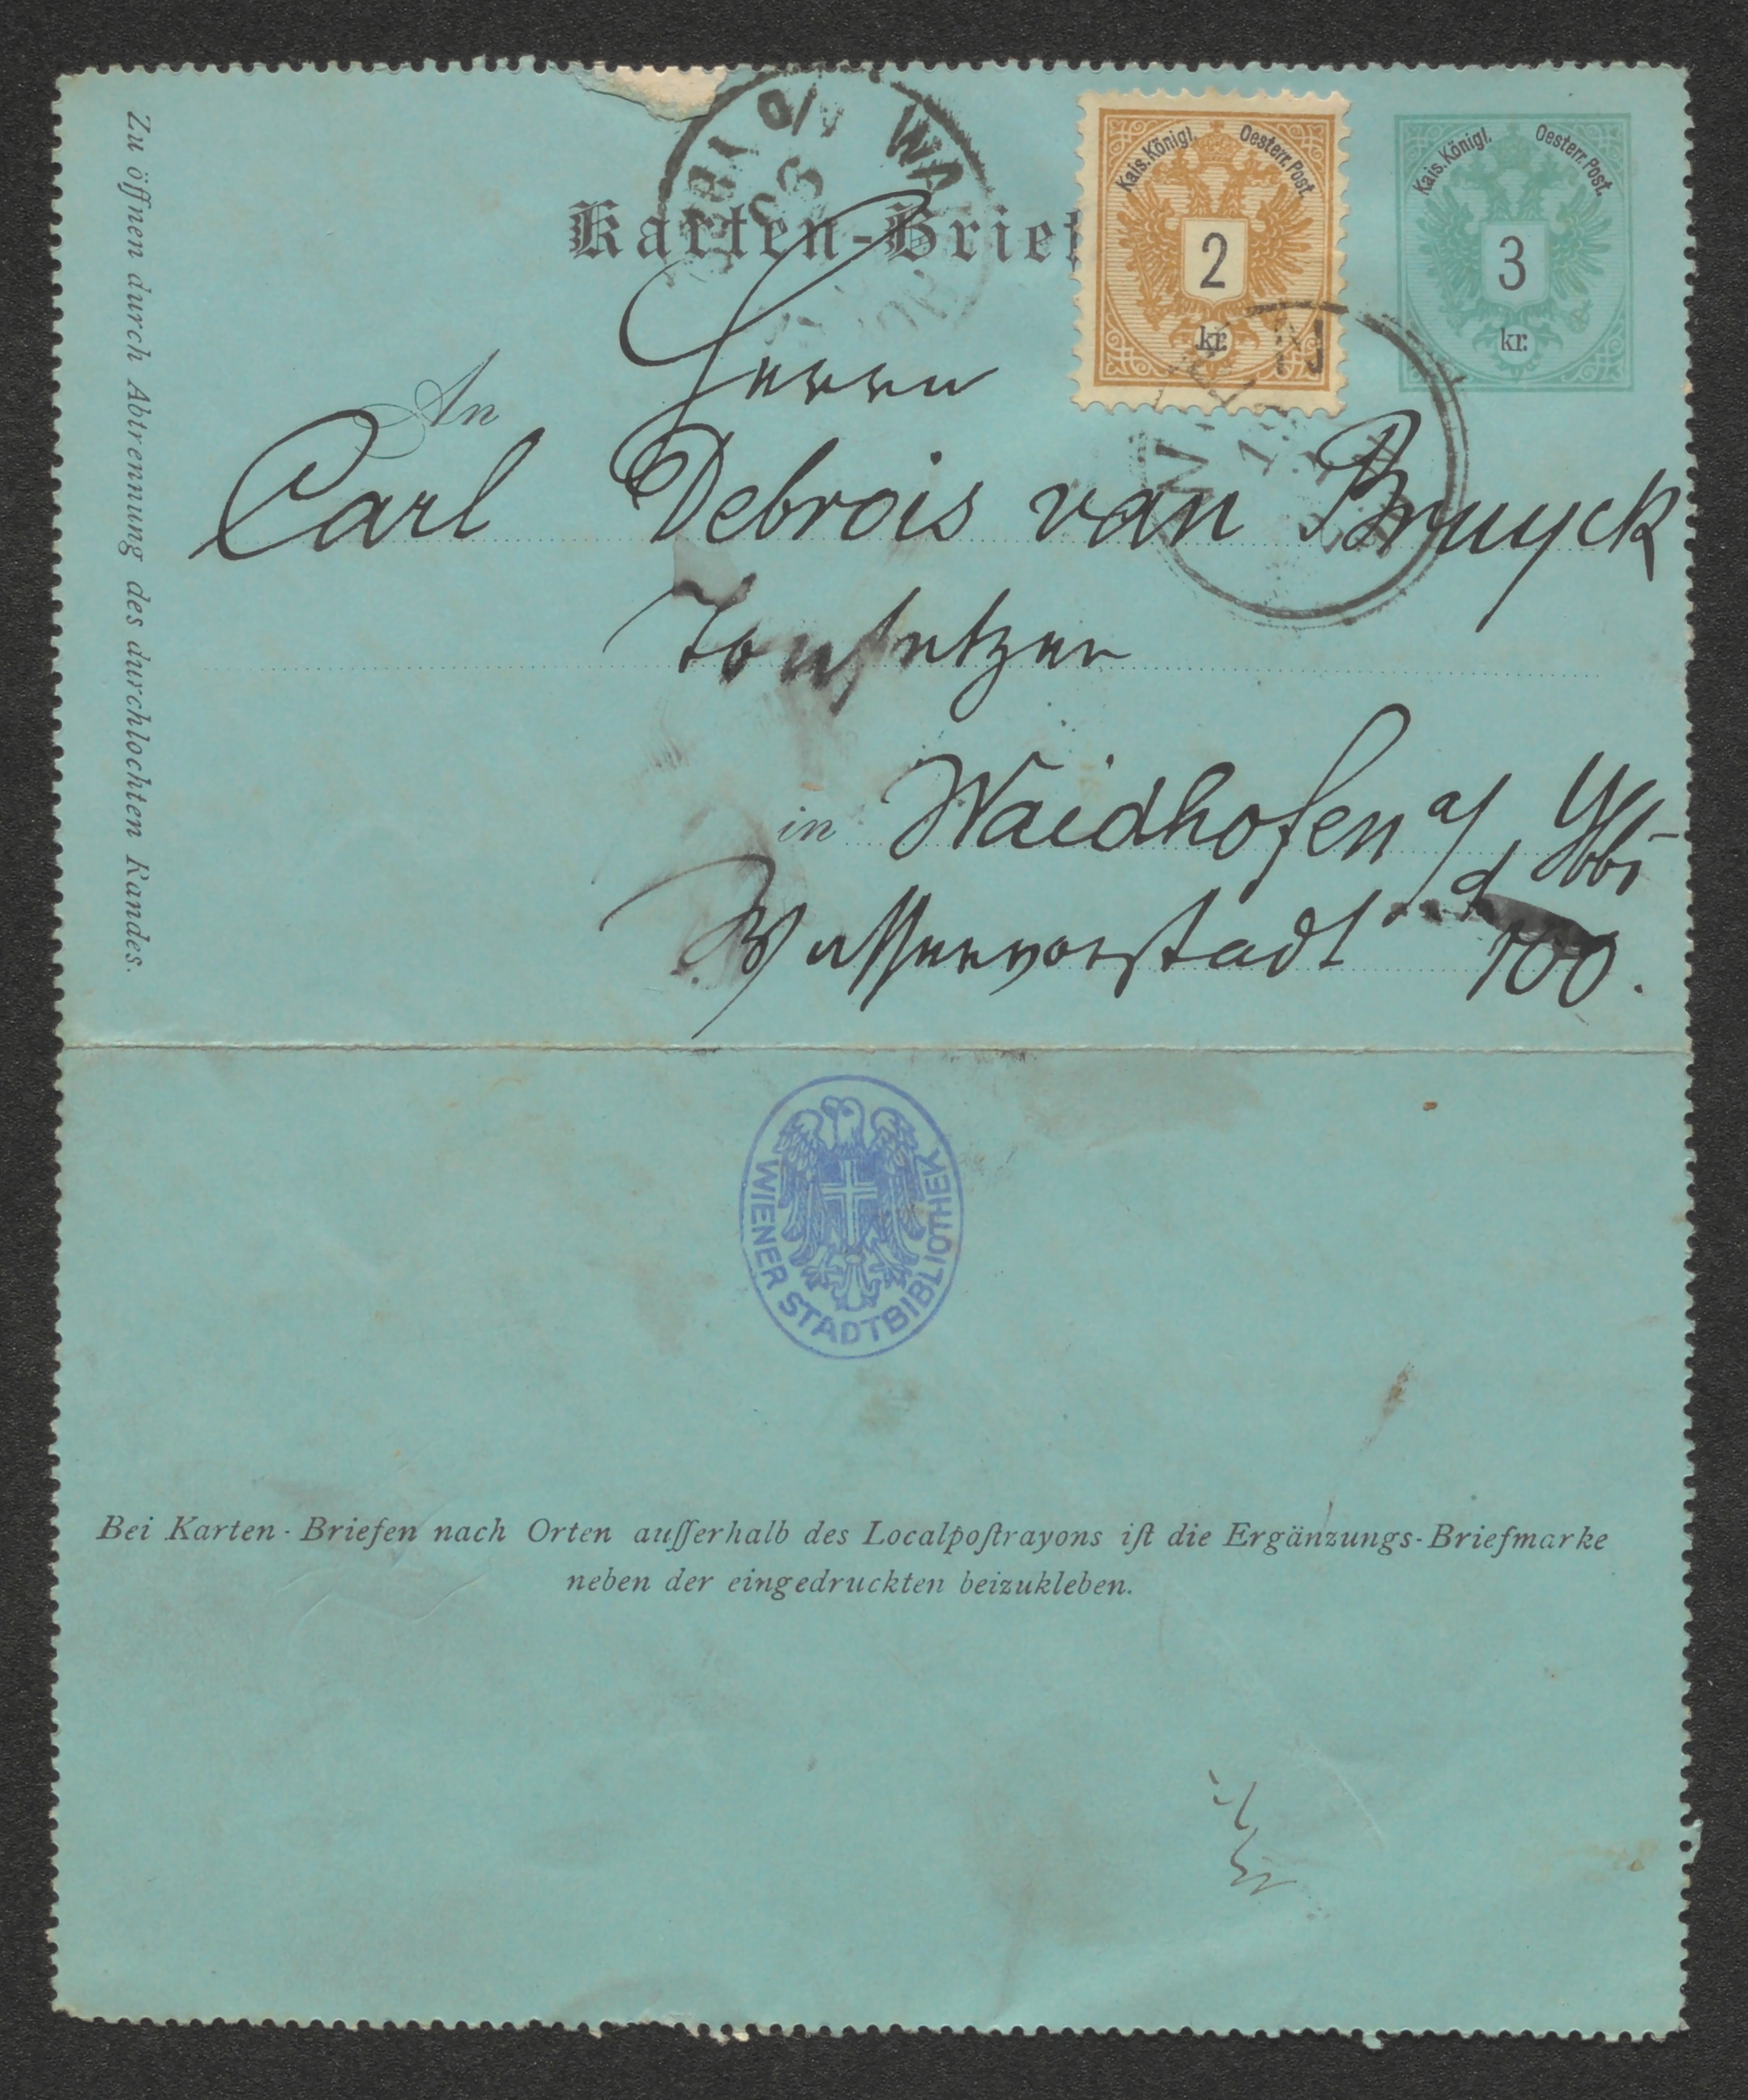 Zu öffnen durch Abtrennung des durchlochten Randes.
Karten-Brief
Kais. Königl. Oesterr. Post.
2
kr.
Kais. Königl. Oesterr. Post.
3
kr.
Herrn
An
Carl Debrois van Bruyck
Tonsetzer
in Waidhofen a/d Ybbs
Wasservorstadt 100.
WIENER STADTBIBLIOTHEK
Bei Karten-Briefen nach Orten auſſerhalb des Localpoſtrayons iſt die Ergänzungs-Briefmarke
neben der eingedruckten beizukleben.